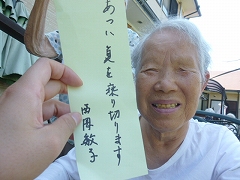 あつい夏を乗り切ります
西岡敏子